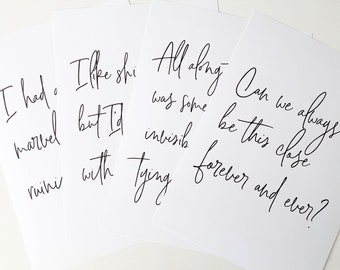 I had
marvel
ruine
I like shi
but I'd
with
All along
was some
invisib
tying
Can we always
be this close
forever and ever?